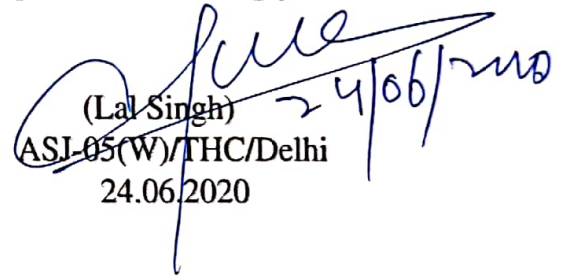 24/06/2020
(Lal Singh)
ASJ-05(W)/THC/Delhi
24.06.2020